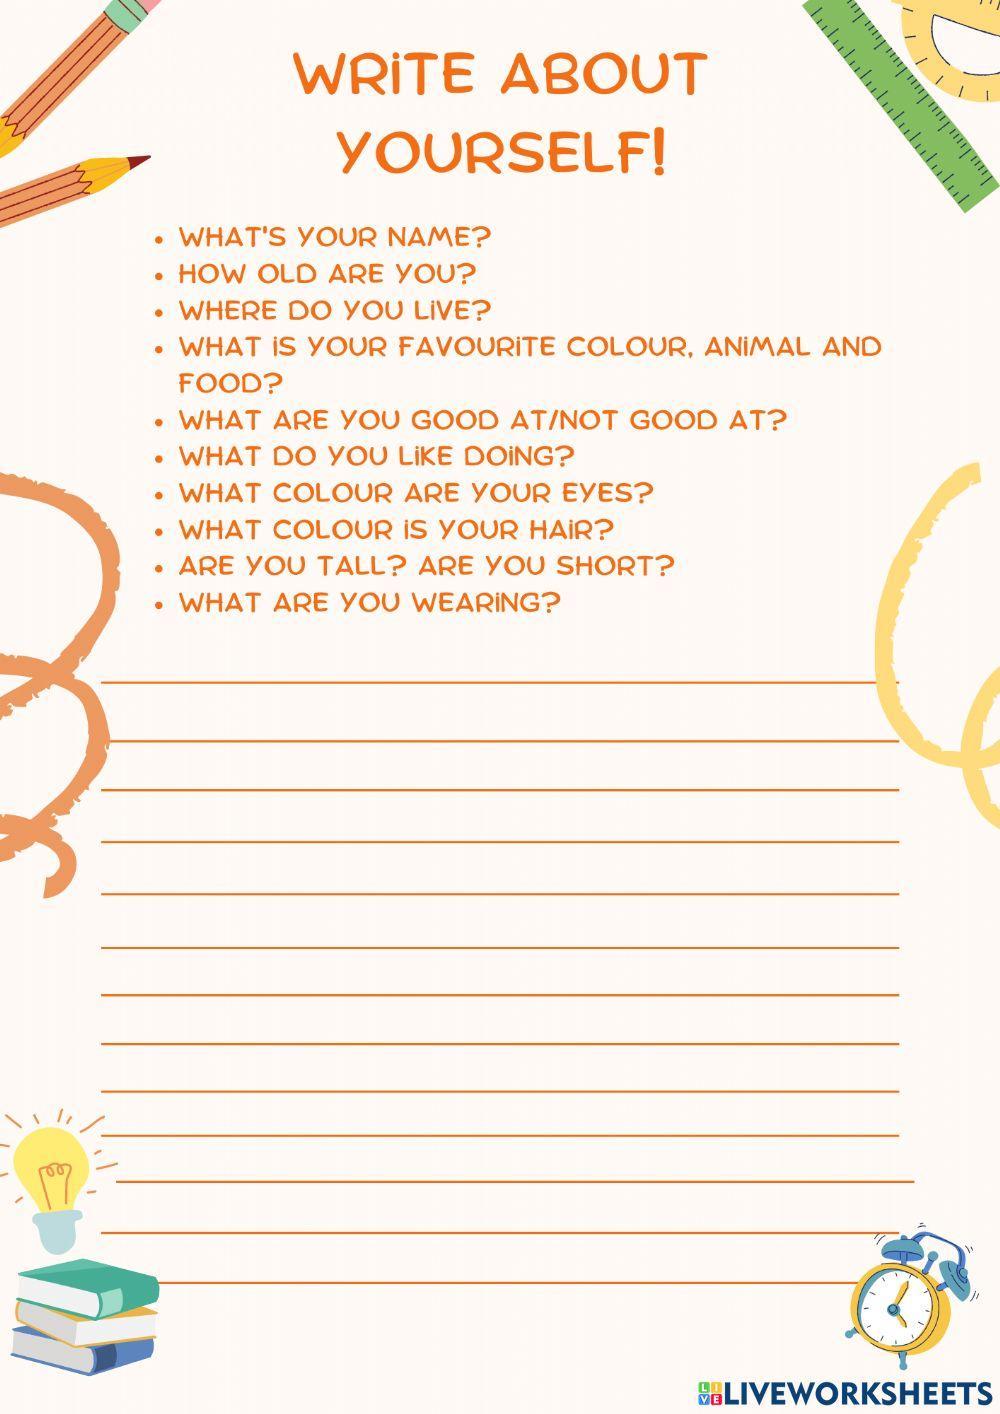 WRITE ABOUT
YOURSELF!
• WHAT'S YOUR NAME?
• HOW OLD ARE YOU?
• WHERE DO YOU LIVE?
• WHAT IS YOUR FAVOURITE COLOUR, ANIMAL AND
FOOD?
• WHAT ARE YOU GOOD AT/NOT GOOD AT?
• WHAT DO YOU LIKE DOING?
• WHAT COLOUR ARE YOUR EYES?
• WHAT COLOUR IS YOUR HAIR?
• ARE YOU TALL? ARE YOU SHORT?
• WHAT ARE YOU WEARING?
LIVE LIVEWORKSHEETS